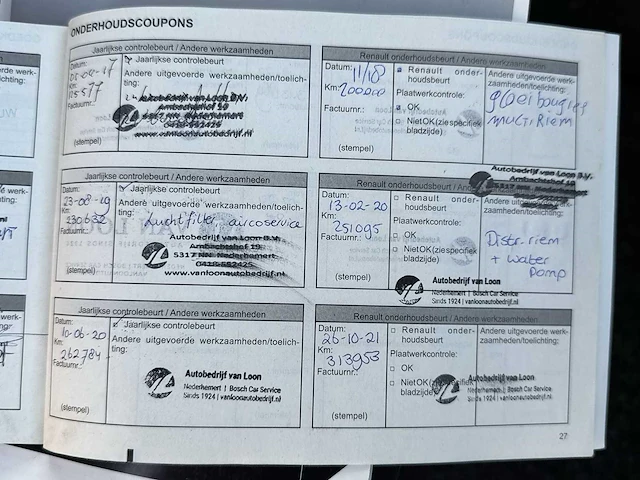 ONDERHOUDSCOUPONS
Jaarlijkse controlebeurt / Andere werkzaamheden
Datum:
Jaarlijkse controlebeurt
Km:
Andere uitgevoerde werkzaamheden/toelich-
ting:
Factuurnr.:
Autobedrijf van Loon B.V.
Ambachtshof 10
5317 NN Nederhemert
0418-552425
www.vanloonautobedrijf.nl
(stempel)
Renault onderhoudsbeurt / Andere werkzaamheden
Datum:
11/18
Renault onder-
houdsbeurt
Andere uitgevoerde werk-
zaamheden/toelichting:
Km:
200000
Plaatwerkcontrole:
gloeibougies
multiriem
Factuurnr.:
OK
Niet OK (zie specifiek
bladzijde)
(stempel)
Autobedrijf van Loon B.V.
Ambachtshof 10
5317 NN Nederhemert
Jaarlijkse controlebeurt / Andere werkzaamheden
Datum:
23-08-19
Jaarlijkse controlebeurt
Km:
230632
Andere uitgevoerde werkzaamheden/toelich-
ting:
Factuurnr.:
Luchtfilter aircoservice
Autobedrijf van Loon B.V.
Ambachtshof 10
5317 NN Nederhemert
0418-552425
www.vanloonautobedrijf.nl
(stempel)
Renault onderhoudsbeurt / Andere werkzaamheden
Datum:
13-02-20
Renault onder-
houdsbeurt
Km:
251095
Plaatwerkcontrole:
Factuurnr.:
OK
Distr. riem
+ water
pomp
(stempel)
Autobedrijf van Loon
Nederhemert | Bosch Car Service
Sinds 1924 | vanloonautobedrijf.nl
Jaarlijkse controlebeurt / Andere werkzaamheden
Datum:
10-06-20
Jaarlijkse controlebeurt
Km:
262784
Andere uitgevoerde werkzaamheden/toelich-
ting:
Factuurnr.:
Autobedrijf van Loon
Nederhemert | Bosch Car Service
Sinds 1924 | vanloonautobedrijf.nl
(stempel)
Renault onderhoudsbeurt / Andere werkzaamheden
Datum:
26-10-21
Renault onder-
houdsbeurt
Andere uitgevoerde werk-
zaamheden/toelichting:
Km:
313953
Plaatwerkcontrole:
Factuurnr.:
OK
Niet OK
bladzijde)
Autobedrijf van Loon
Nederhemert | Bosch Car Service
Sinds 1924 | vanloonautobedrijf.nl
(stempel)
27